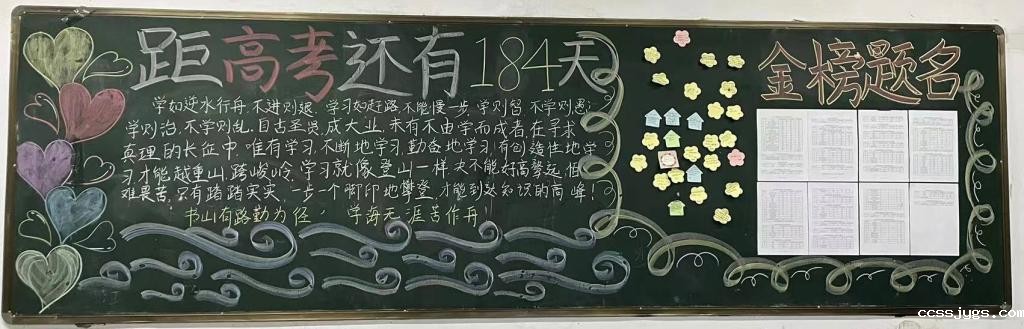 距高考还有184天
学如逆水行舟,不进则退,学习如赶路,不能慢一步,学则智,不学则愚;
学则治,不学则乱,自古圣贤,成大业,未有不由学而成者,在寻求
真理的长征中,唯有学习,不断地学习,勤奋地学习,有创造性地学
习才能越重山,跨峻岭,学习就像登山一样,决不能好高骛远,相
难畏苦,只有踏踏实实,一步一个脚印地攀登,才能到达知识的高峰!
书山有路勤为径, 学海无涯苦作舟!
金榜题名
ccssjygs.com